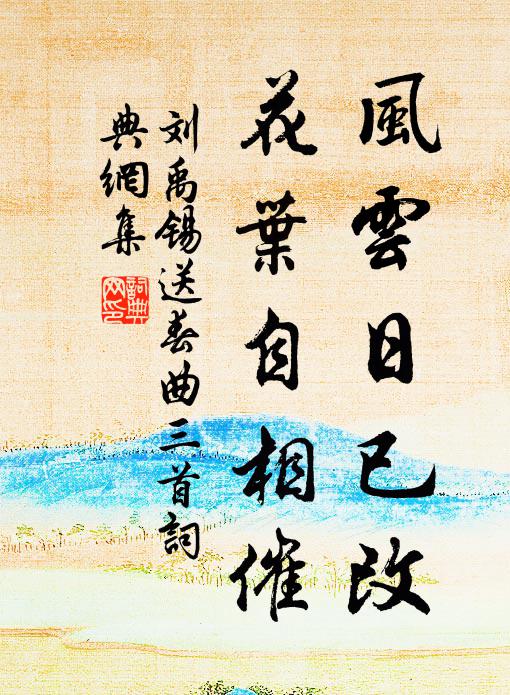 風雲日已改
花葉自相催
刘禹锡送春曲三首詞
典網集
詞典
网印